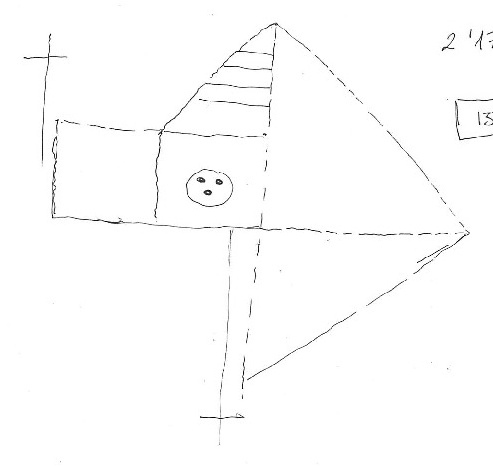 2 '17
13